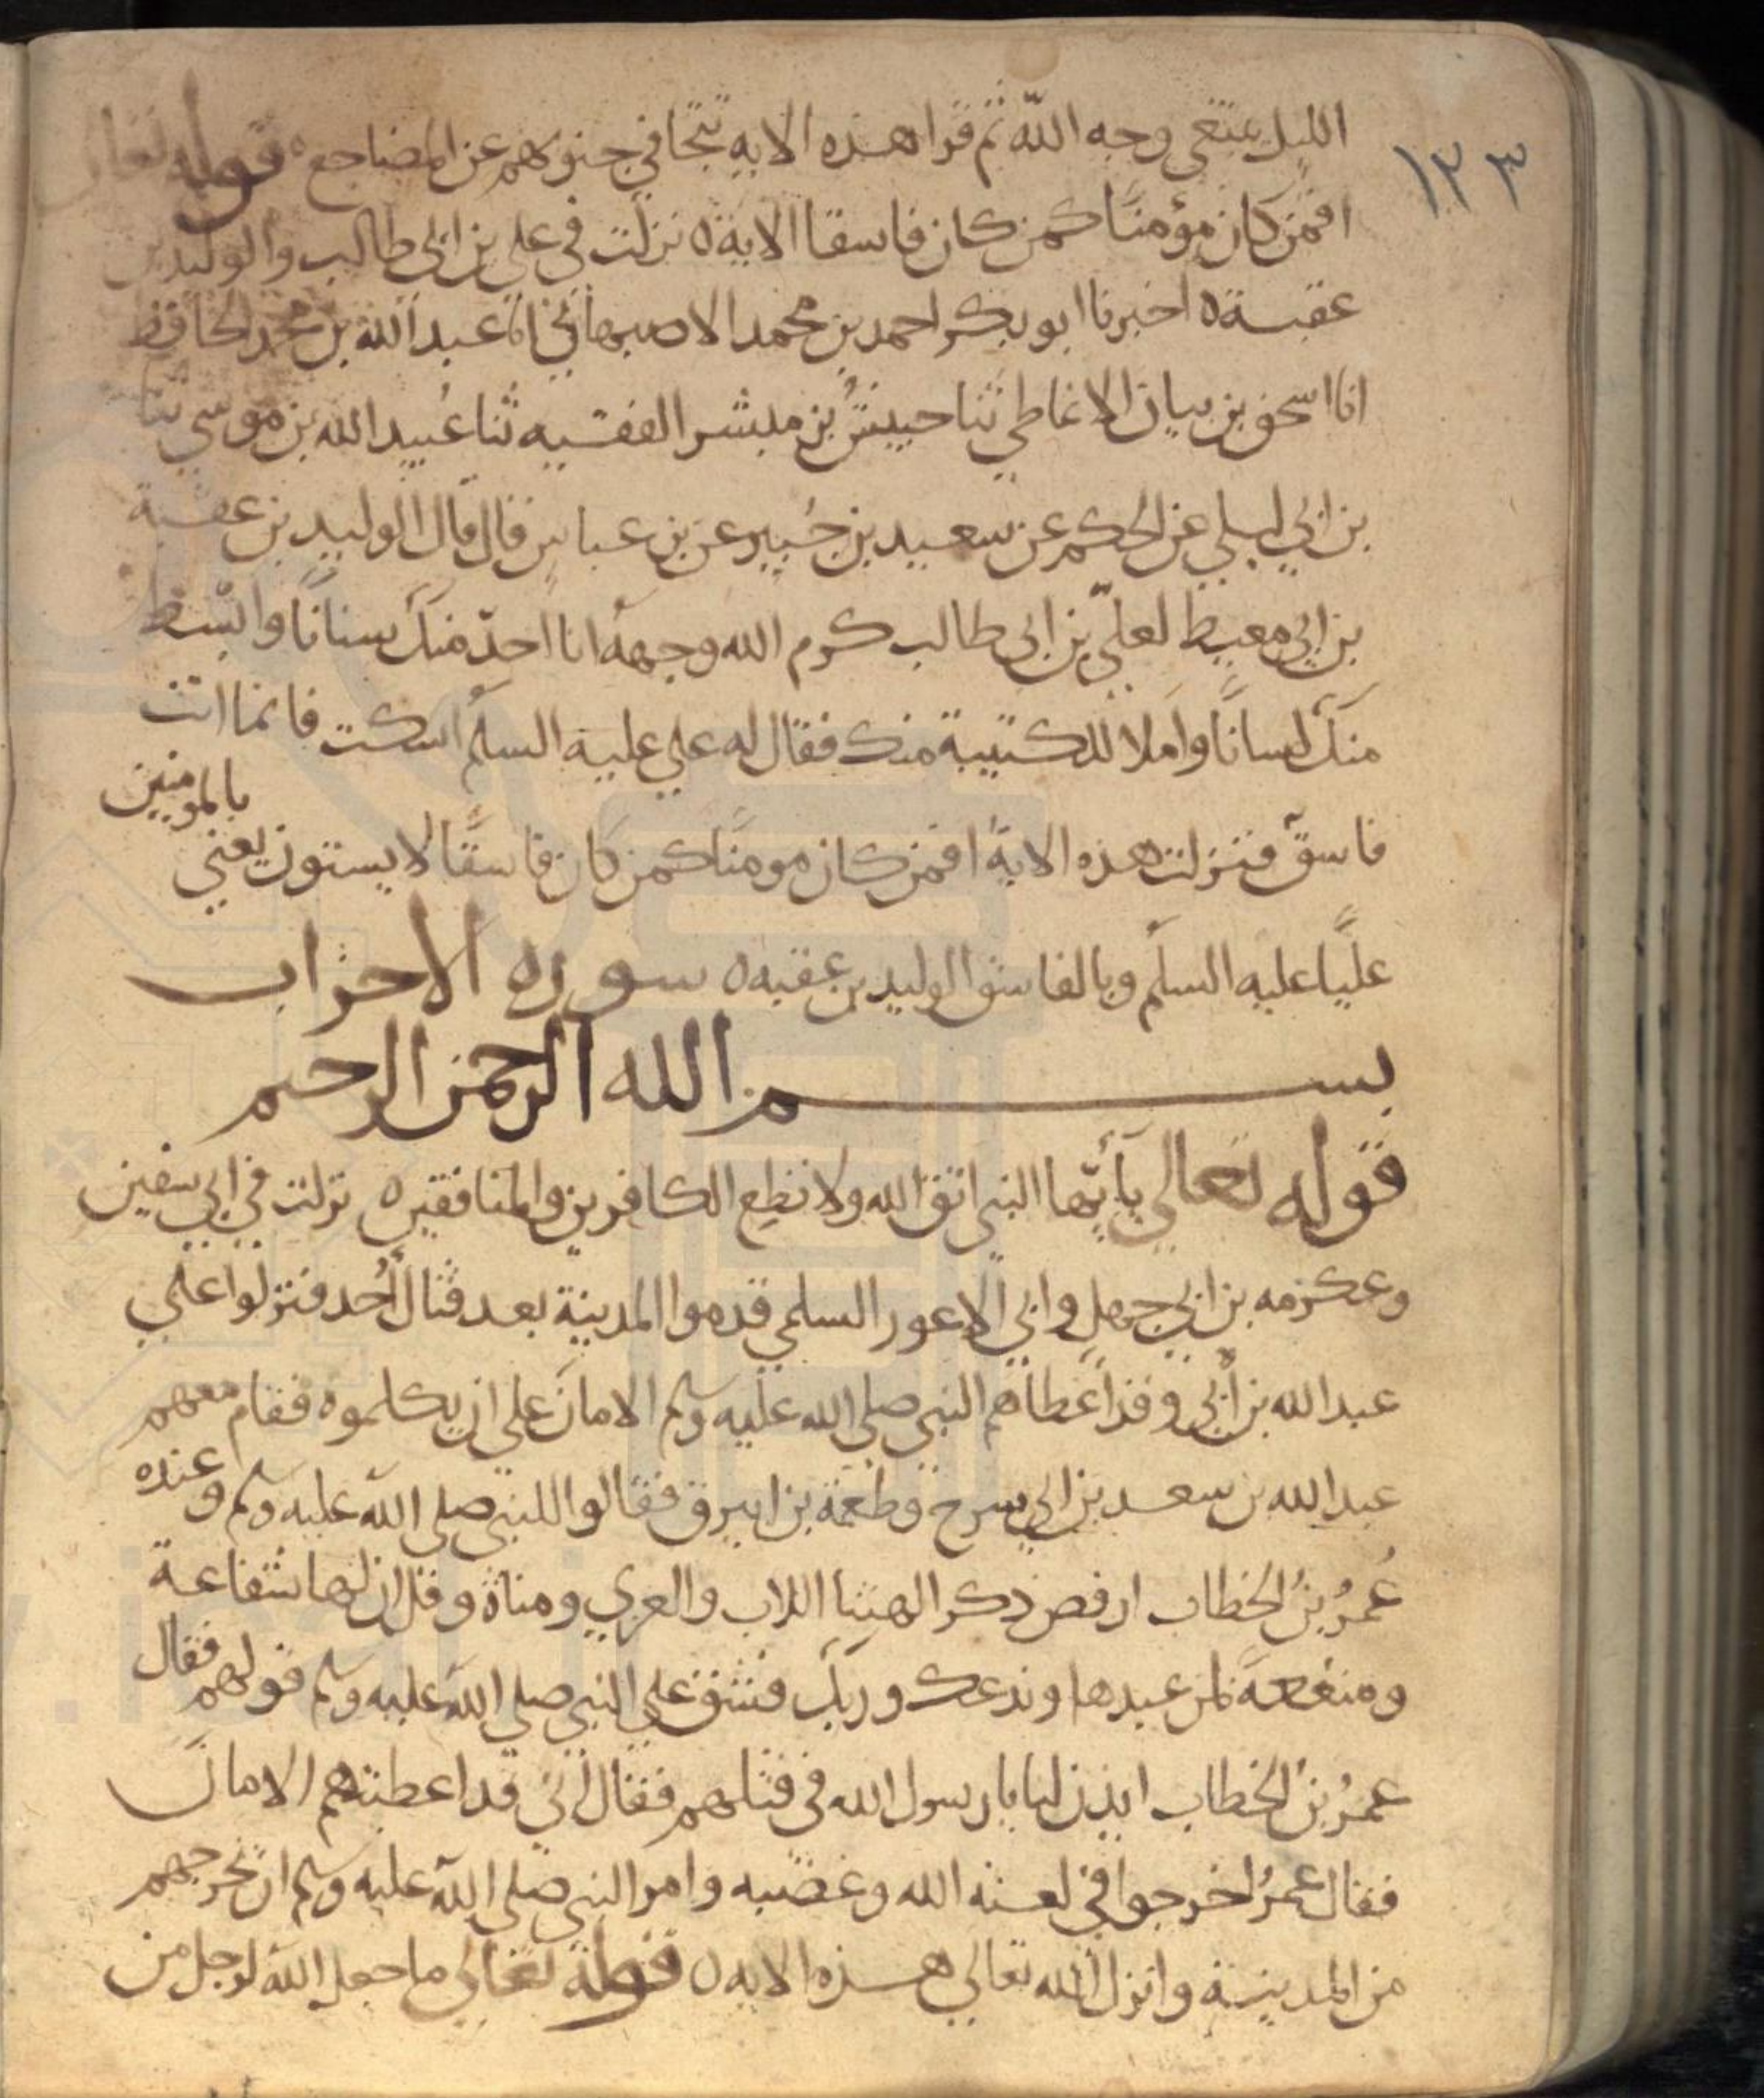 ١٢٣
الليل يبتغي وجه الله ثم قرا هذه الايه تتجافي جنوبهم عن المضاجع ه قوله تعالى
افمن كان مؤمنًا كمن كان فاسقا الاية ه نزلت في علي بن ابي طالب والوليد بن
عقبة ه اخبرنا ابو بكر احمد بن محمد الاصبهاني انا عبد الله بن محمد الحافظ
انا اسحق بن بيان الانماطي ثنا حبيش بن مبشر الفقيه ثنا عُبيد الله بن موسي ثنا
بن ابي ليلي عن الحكم عن سعيد بن جُبير عن بن عباس قال قال الوليد بن عقبة
بن ابي معيط لعليّ بن ابي طالب كرم الله وجهه انا احدّ منك سنانًا وابسط
منك لسانًا واملا للكتيبة منك فقال له علي عليه السلم اسكت فانما انت
فاسق فنزلت هذه الاية افمن كان مومنًا كمن كان فاسقًا لا يستون يعني بالمومنين
عليًا عليه السلم وبالفاسق الوليد بن عقبه ه سوره الاحزاب
بسم الله الرحمن الرحيم
قوله تعالي يا يّها النبي اتق الله ولا تطع الكافرين والمنافقين ه نزلت في ابي سفين
وعكرمه بن ابي جهل وابي الاعور السلمي قدموا المدينة بعد قتال أُحد فنزلوا علي
عبد الله بن أبي وقد اعطاهم النبي صلي الله عليه وسلم الامان علي ان يكلموه فقام معهم
عبد الله بن سعد بن ابي سرح وطعمة بن ابيرق فقالوا للنبي صلي الله عليه وسلم وعنده
عُمرُ بنُ الخطاب ارفض ذكر الهتنا اللات والعزي ومناة وقل ان لها شفاعة
ومنفعة لمن عبدها وندعك وربك فشق علي النبي صلي الله عليه وسلم قولهم فقال
عمرُ بنُ الخطاب ايذن لنا يا رسول الله في قتلهم فقال اني قد اعطيتهم الامان
فقال عمرُ اخرجوا في لعنه الله وغضبه وامر النبي صلي الله عليه وسلم ان يخرجهم
من المدينة وانزل الله تعالي هذه الايه ه قوله تعالي ما جعل الله لرجل من